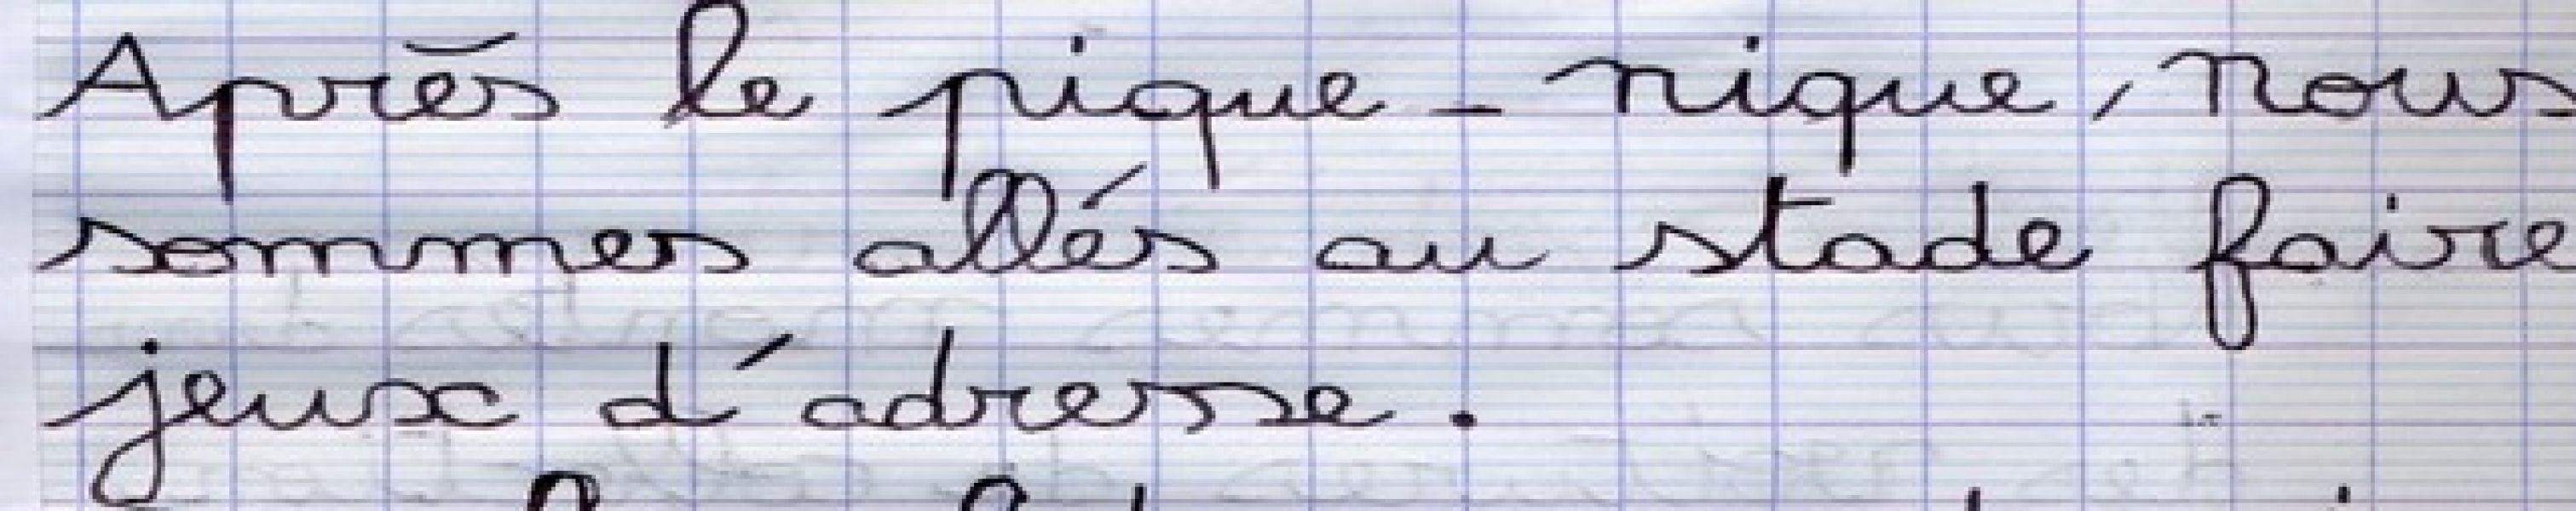 Après le pique-nique, nous
sommes allés au stade faire
jeux d'adresse.